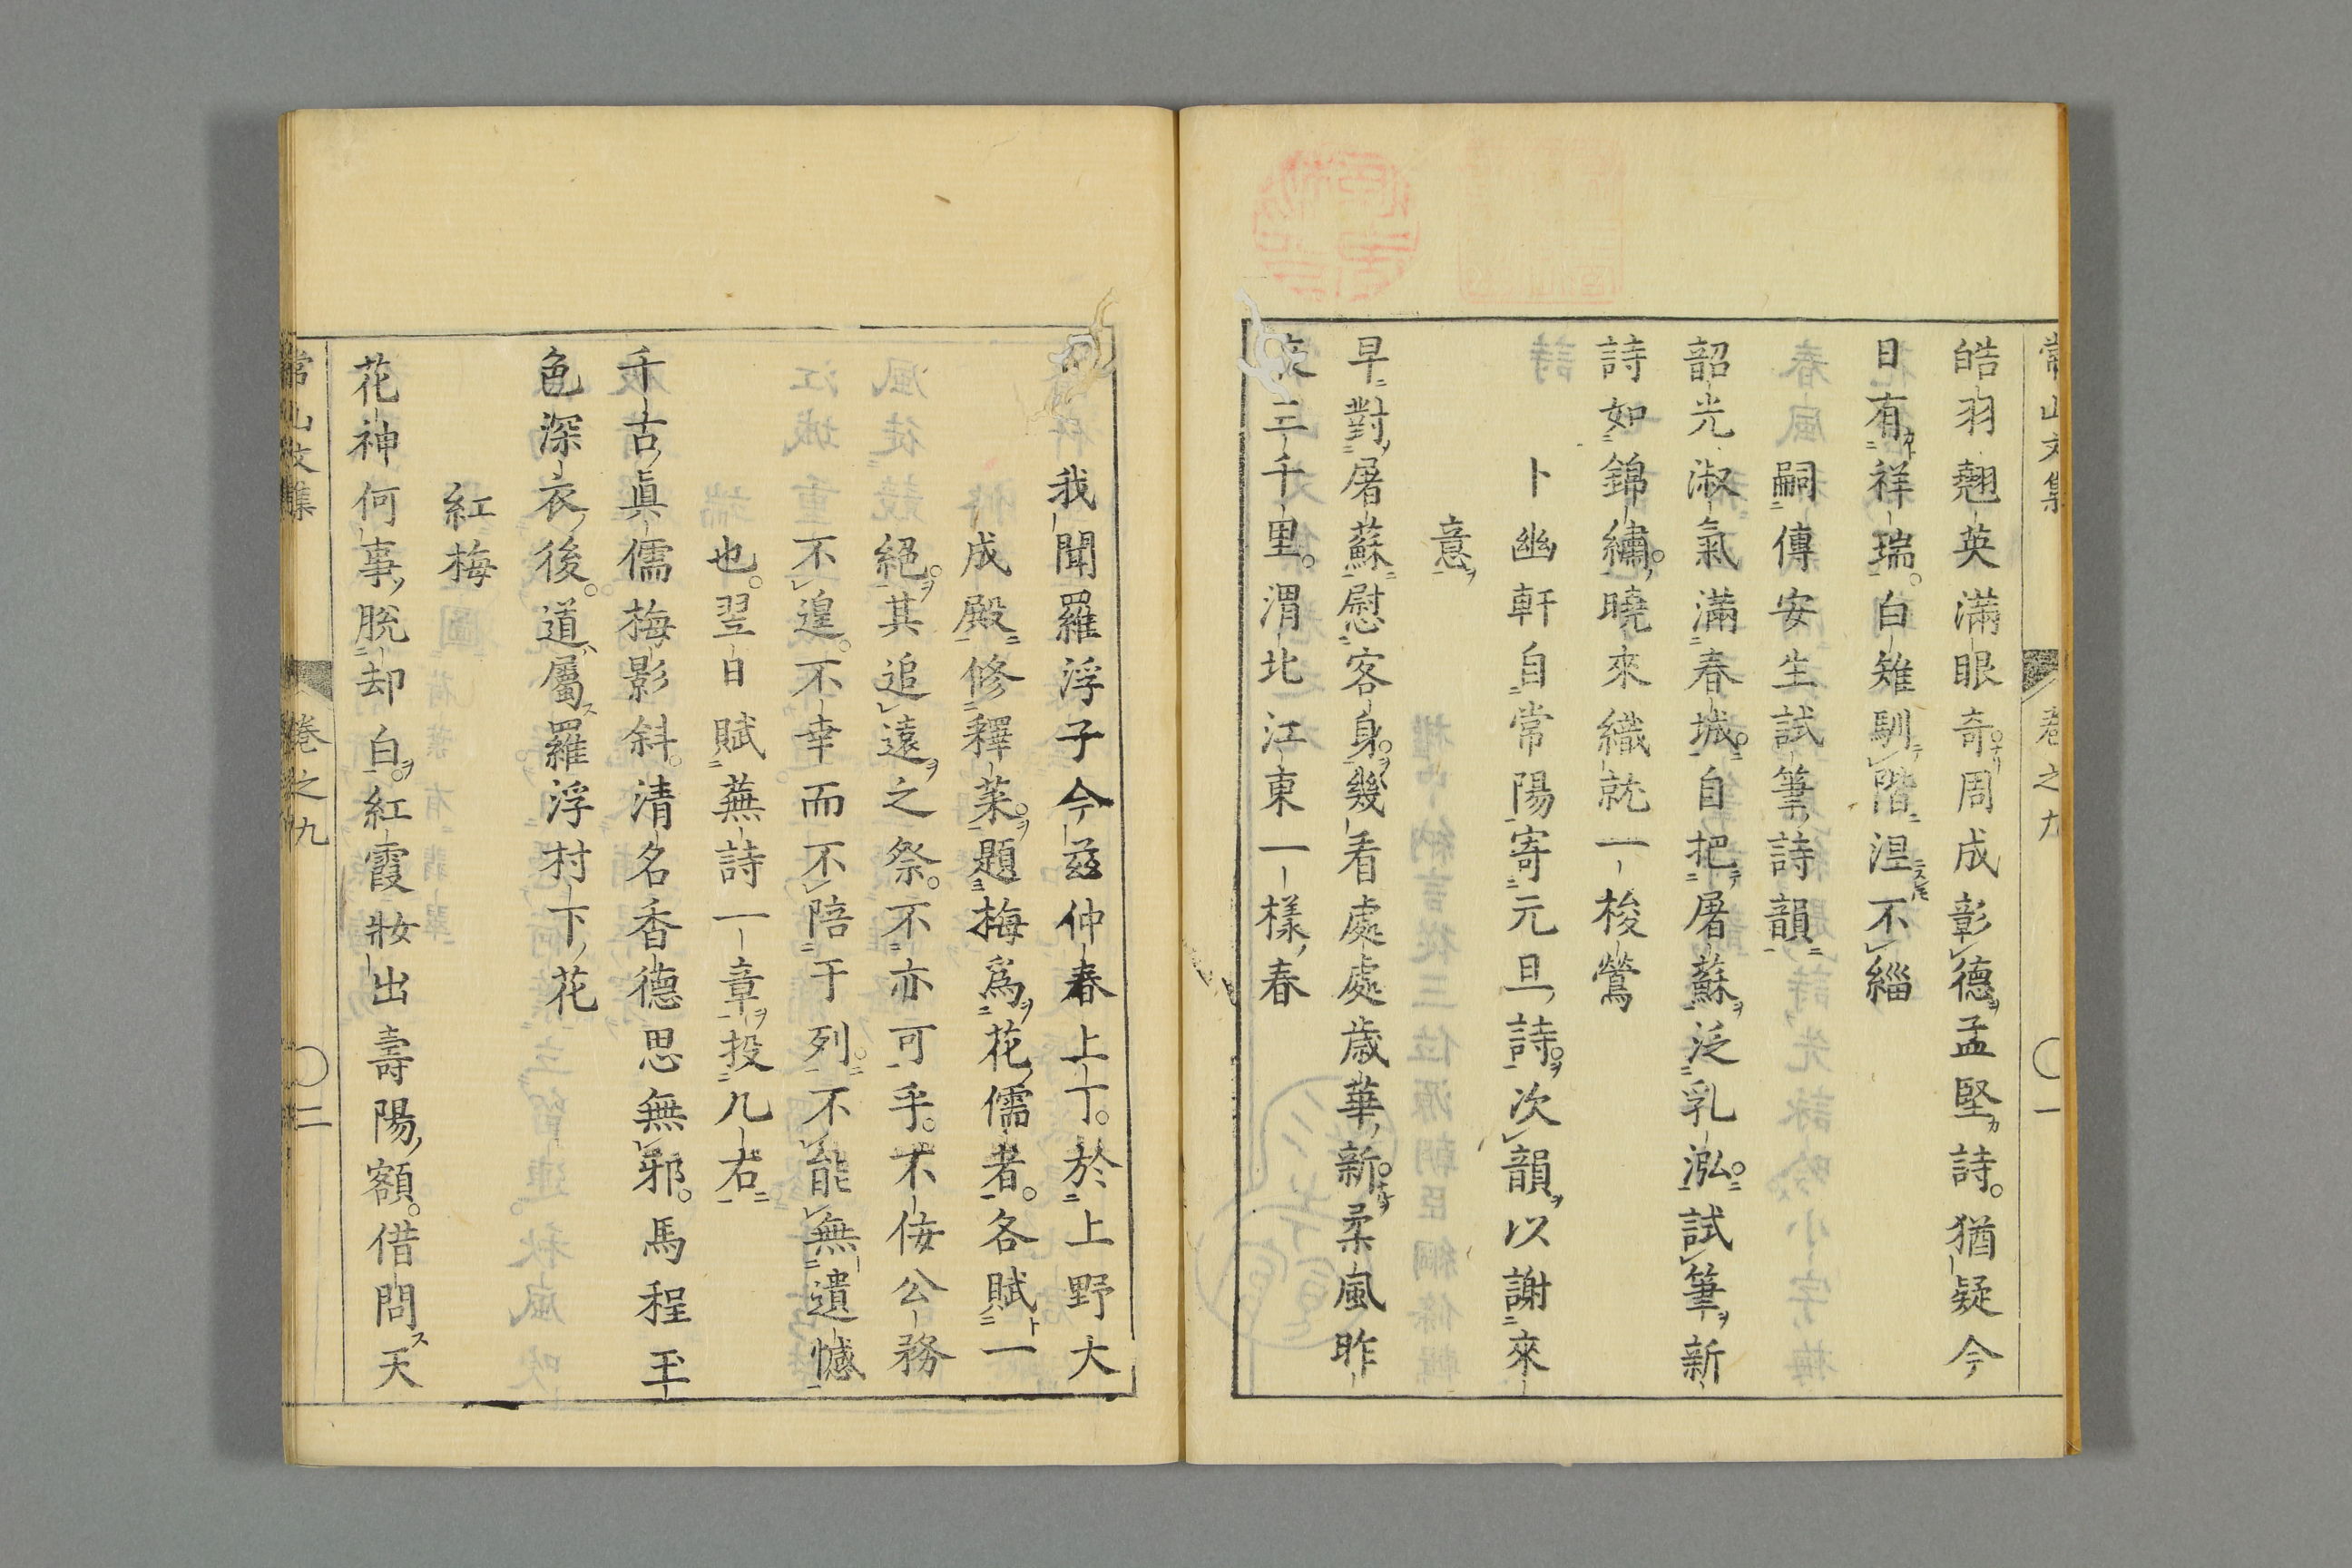 常山文集 卷之九 〇一
皓羽翹英滿眼奇周成彰德孟堅詩猶疑今
日有祥瑞白雉馴階涅不緇
嗣傳安生試筆詩韻
韶光淑氣滿春城自把屠蘇泛乳泓試筆新
詩如錦繡曉來織就一梭鶯
卜幽軒自常陽寄元旦詩次韻以謝來
意
早對屠蘇慰客身幾看處處歳華新柔風昨
三千里渭北江東一樣春
我聞羅浮子今茲仲春上丁於上野大
成殿修釋菜題梅爲花儒者各賦一
絕其追遠之祭不亦可乎不佞公務
不遑不幸而不陪于列不能無遺憾
也翌日賦蕪詩一章投几右
千古眞儒梅影斜清名香德思無邪馬程玉
色深衣後道屬羅浮村下花
紅梅
花神何事脫却白紅霞妝出壽陽額借問天
常山文集 卷之九 〇二